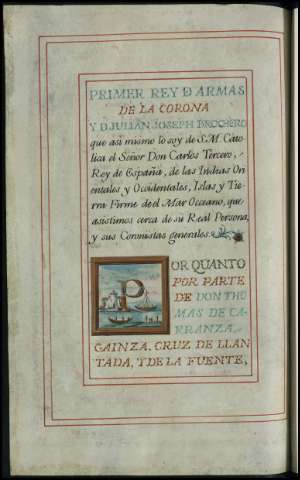 PRIMER REY D ARMAS
DE LA CORONA
Y D JULIAN JOSEPH BROCHERO
que asi mismo lo soy de S.M. Cato-
lica el Señor Don Carlos Tercero,
Rey de España, de las Indias Ori-
entales y Occidentales, Islas y Tie-
rra Firme de el Mar Occeano, que
asistimos cerca de su Real Persona,
y sus Coronistas generales.
POR QUANTO
POR PARTE
DE DON THO
MAS DE CA-
RRANZA,
GAINZA, CRUZ DE LLAN
TADA, Y DE LA FUENTE,